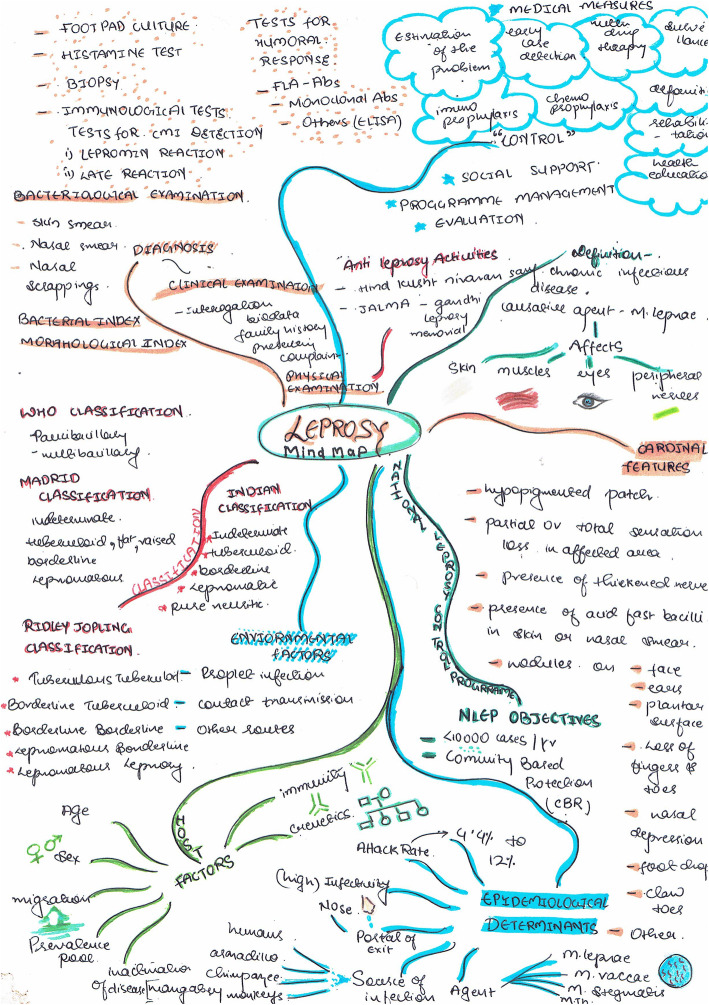 - FOOT PAD CULTURE
- HISTAMINE TEST
- BIOPSY
- IMMUNOLOGICAL TESTS
TESTS FOR CMI DETECTION
i) LEPROMIN REACTION
ii) LATE REACTION
TESTS FOR
HUMORAL
RESPONSE
- FLA-Abs
- Monoclonal Abs
- Others (ELISA)
MEDICAL MEASURES
Estimation
of the
problem
early
case
detection
multi
drug
therapy
immuno
prophylaxis
chemo
prophylaxis
rehabili
-tation
health
education
"CONTROL"
SOCIAL SUPPORT
PROGRAMME MANAGEMENT
EVALUATION
BACTERIOLOGICAL EXAMINATION
- Skin smear
- Nasal smear
- Nasal
scrappings
BACTERIAL INDEX
MORPHOLOGICAL INDEX
DIAGNOSIS
CLINICAL EXAMINATION
- Interogation
biodata
family history
presenting
complain
PHYSICAL
EXAMINATION
Anti leprosy Activities
- Hind Kusht nivaran
- JALMA - gandhi
leprosy
memorial
Definition-
chronic infectious
disease.
causative agent - M. leprae.
Affects
Skin
muscles
eyes
peripheral
nerves
LEPROSY
MIND MAP
WHO CLASSIFICATION
- Paucibacillary
- multibacillary
MADRID
CLASSIFICATION
indeterminate
tuberculoid, flat, raised
borderline
lepromatous
CLASSIFICATION
INDIAN
CLASSIFICATION
* tuberculoid
* borderline
* Lepromatic
* pure neuritic
RIDLEY JOPLING
CLASSIFICATION
* Borderline Tuberculoid
* Borderline Borderline
* Lepromatous Borderline
ENVIORNMENTAL
FACTORS
- contact transmission
- Other routes
NATIONAL LEPROSY CONTROL
CARDINAL
FEATURES
- hypopigmented patch.
- partial or total sensation
loss in affected area.
- presence of thickened nerve
- presence of acid fast bacilli
in skin or nasal smear.
- nodules on
- face
- ears
- plantar
surface
- Loss of
fingers &
toes
- nasal
depression
- foot drop
- claw
toes
- Other.
NLEP OBJECTIVES
- Comunity Based
Protection
(CBR)
HOST
FACTORS
Age
Sex
migration
Prevalence
pool
immunity
Genetics
EPIDEMIOLOGICAL
DETERMINANTS
Attack Rate
4.4% to
12%
(high) Infectivity
Nose
Portal of
exit
Source of
infection
humans
armadillo
chimpanzee
mangabey monkeys
Agent
M. leprae
M. vaccae